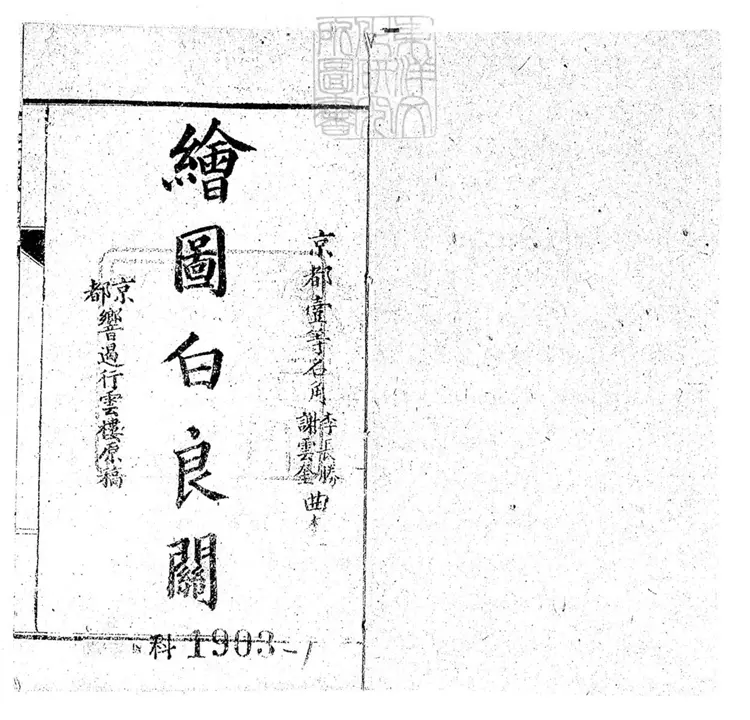 京都壹等名角 李長勝 謝雲奎 曲本
繪圖白良關
京都響遏行雲樓原稿
科 1903-1
東洋文化研究所圖書